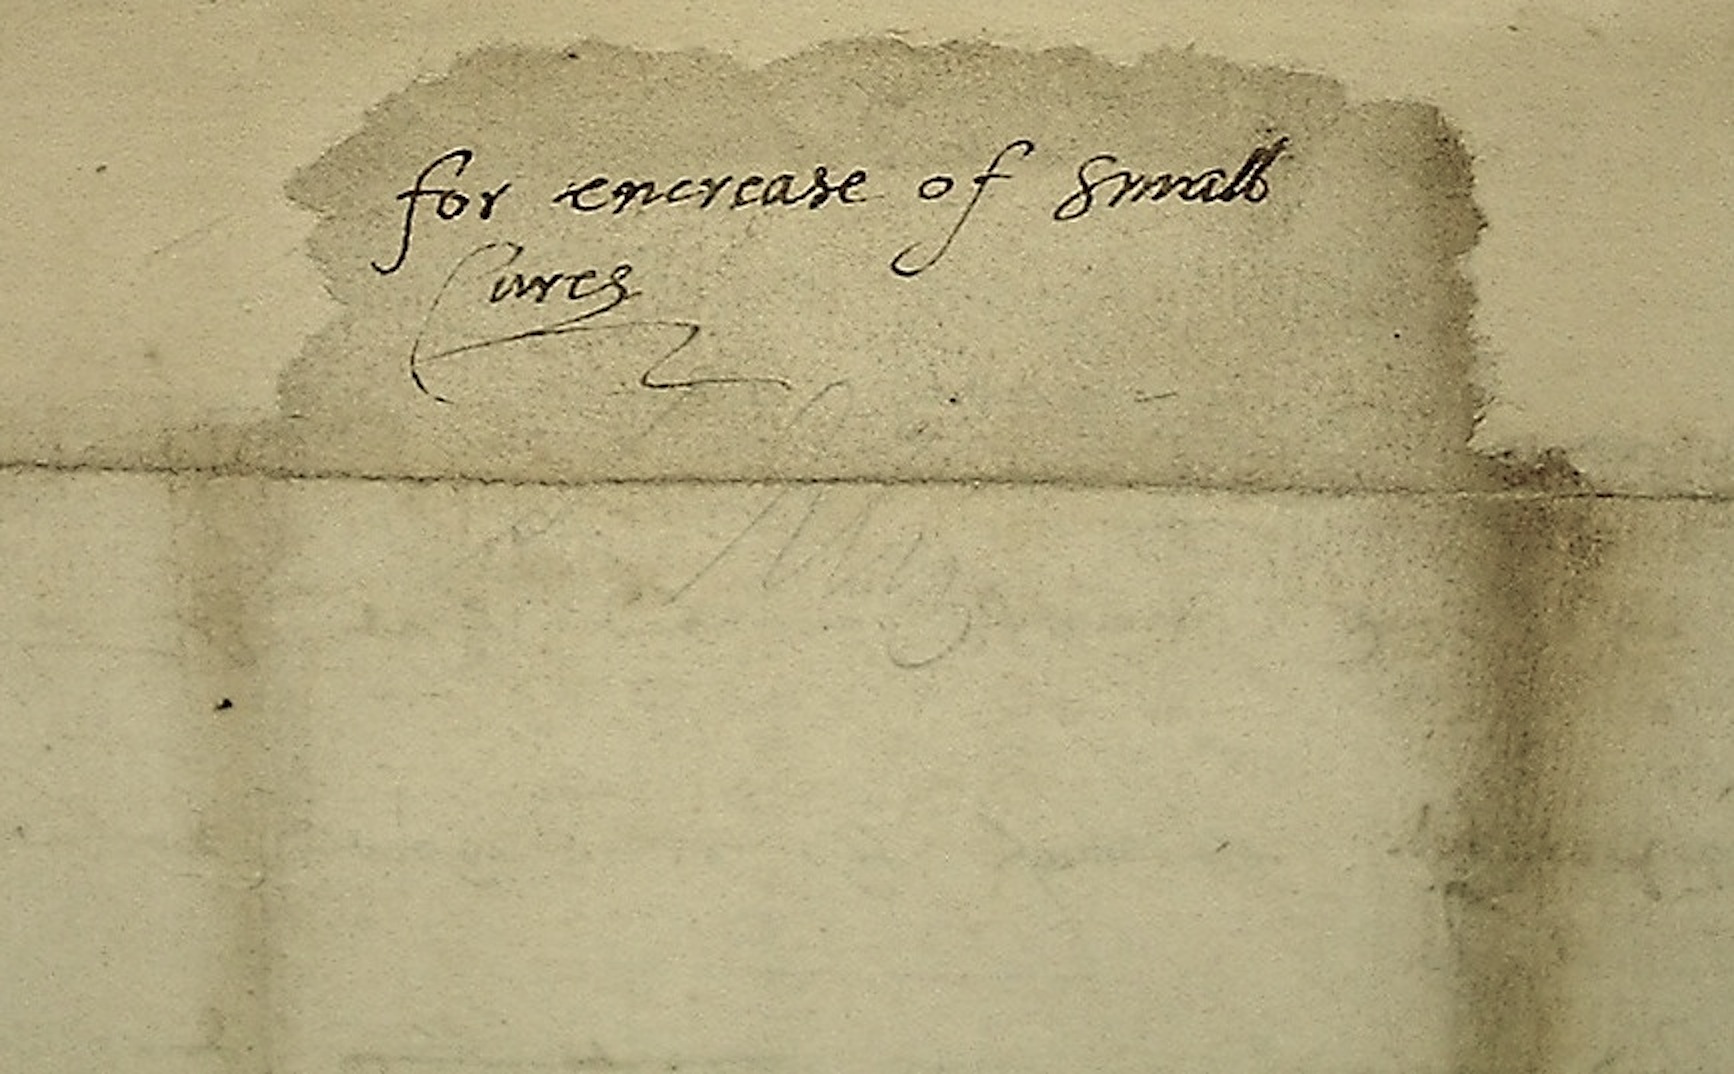 for encrease of small
Cures